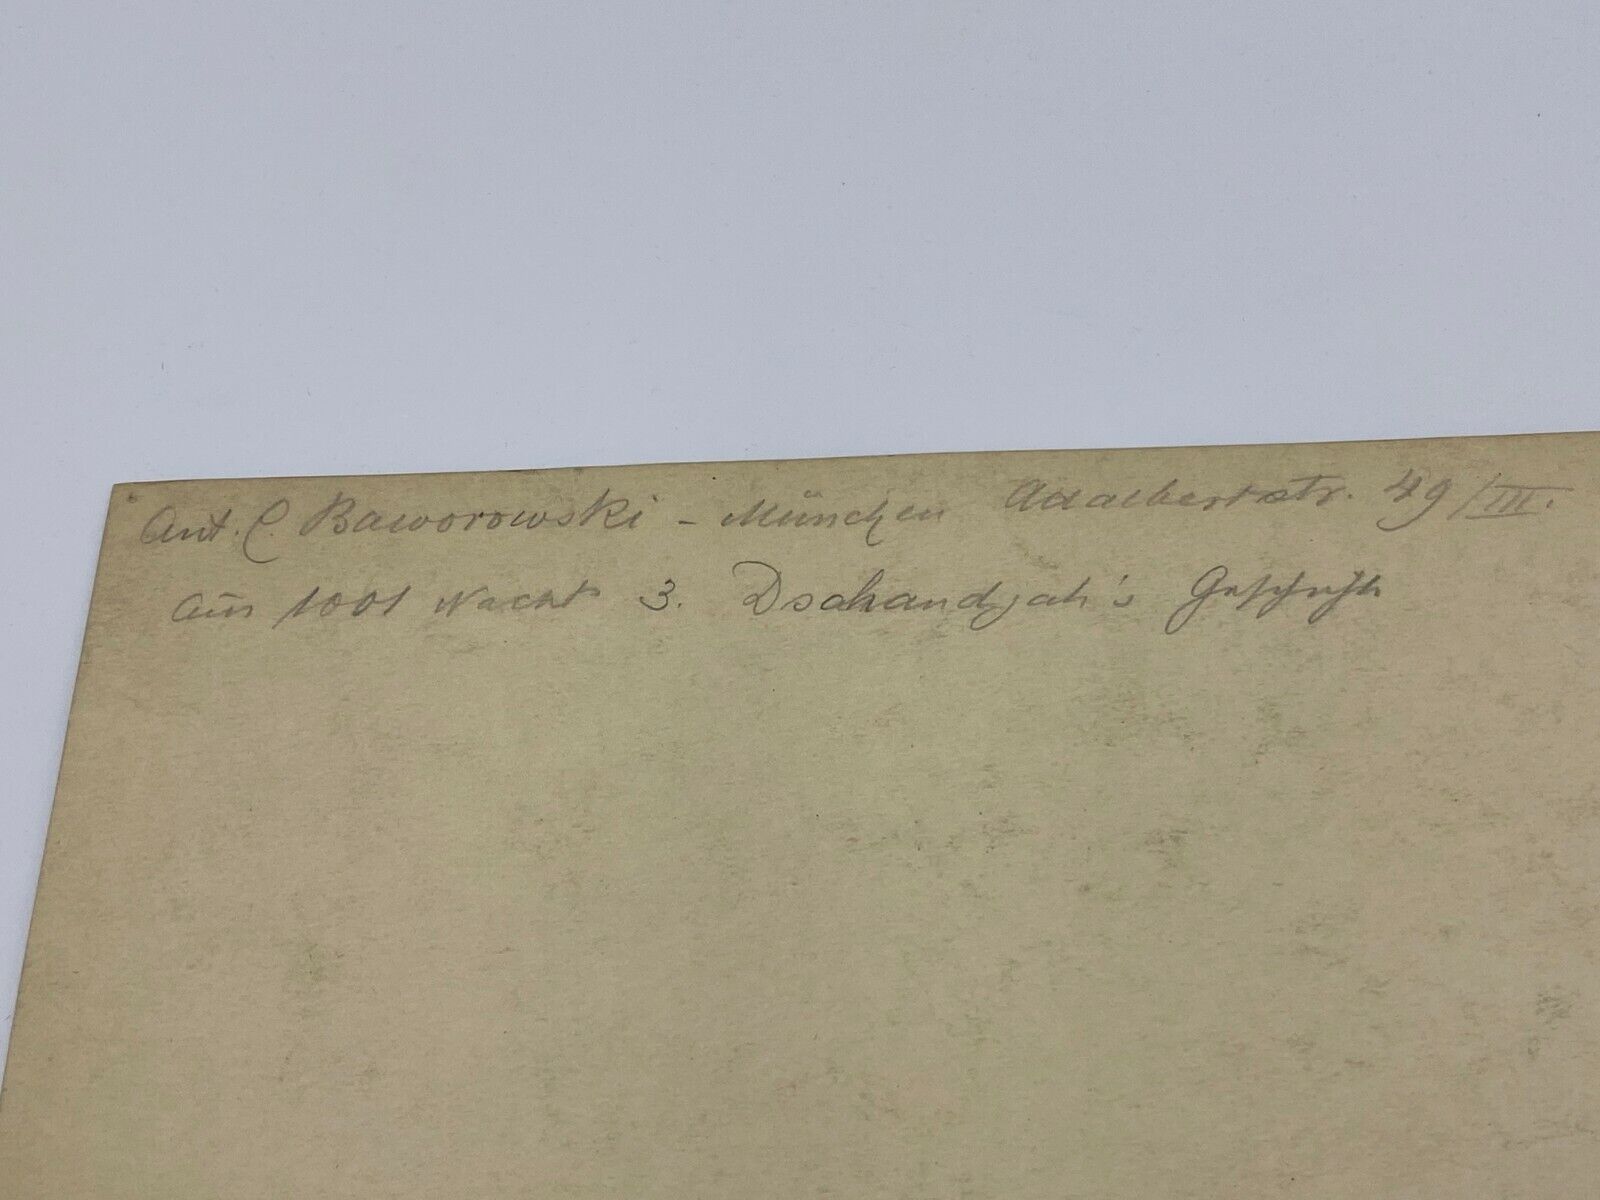 Ant. C. Baworowski – München Adalbertstr. 49/III.
Aus 1001 Nacht 3. Dschandjah's Geschichte